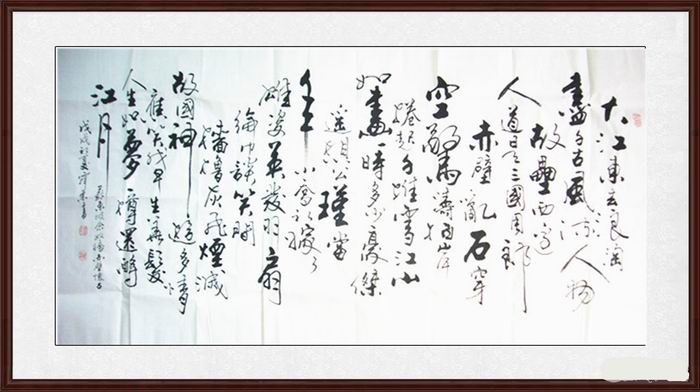 大江東去浪淘
盡千古風流人物
故壘西邊
人道是三國周郎
赤壁亂石穿
空驚濤拍岸
捲起千堆雪江山
如畫一時多少豪傑
遙想公瑾當
年
小喬初嫁了
雄姿英發羽扇
綸巾談笑間
檣櫓灰飛煙滅
故國神遊多情
應笑我早生華髮
人生如夢一樽還酹
江月
蘇東坡念奴嬌赤壁懷古
戊戌初夏